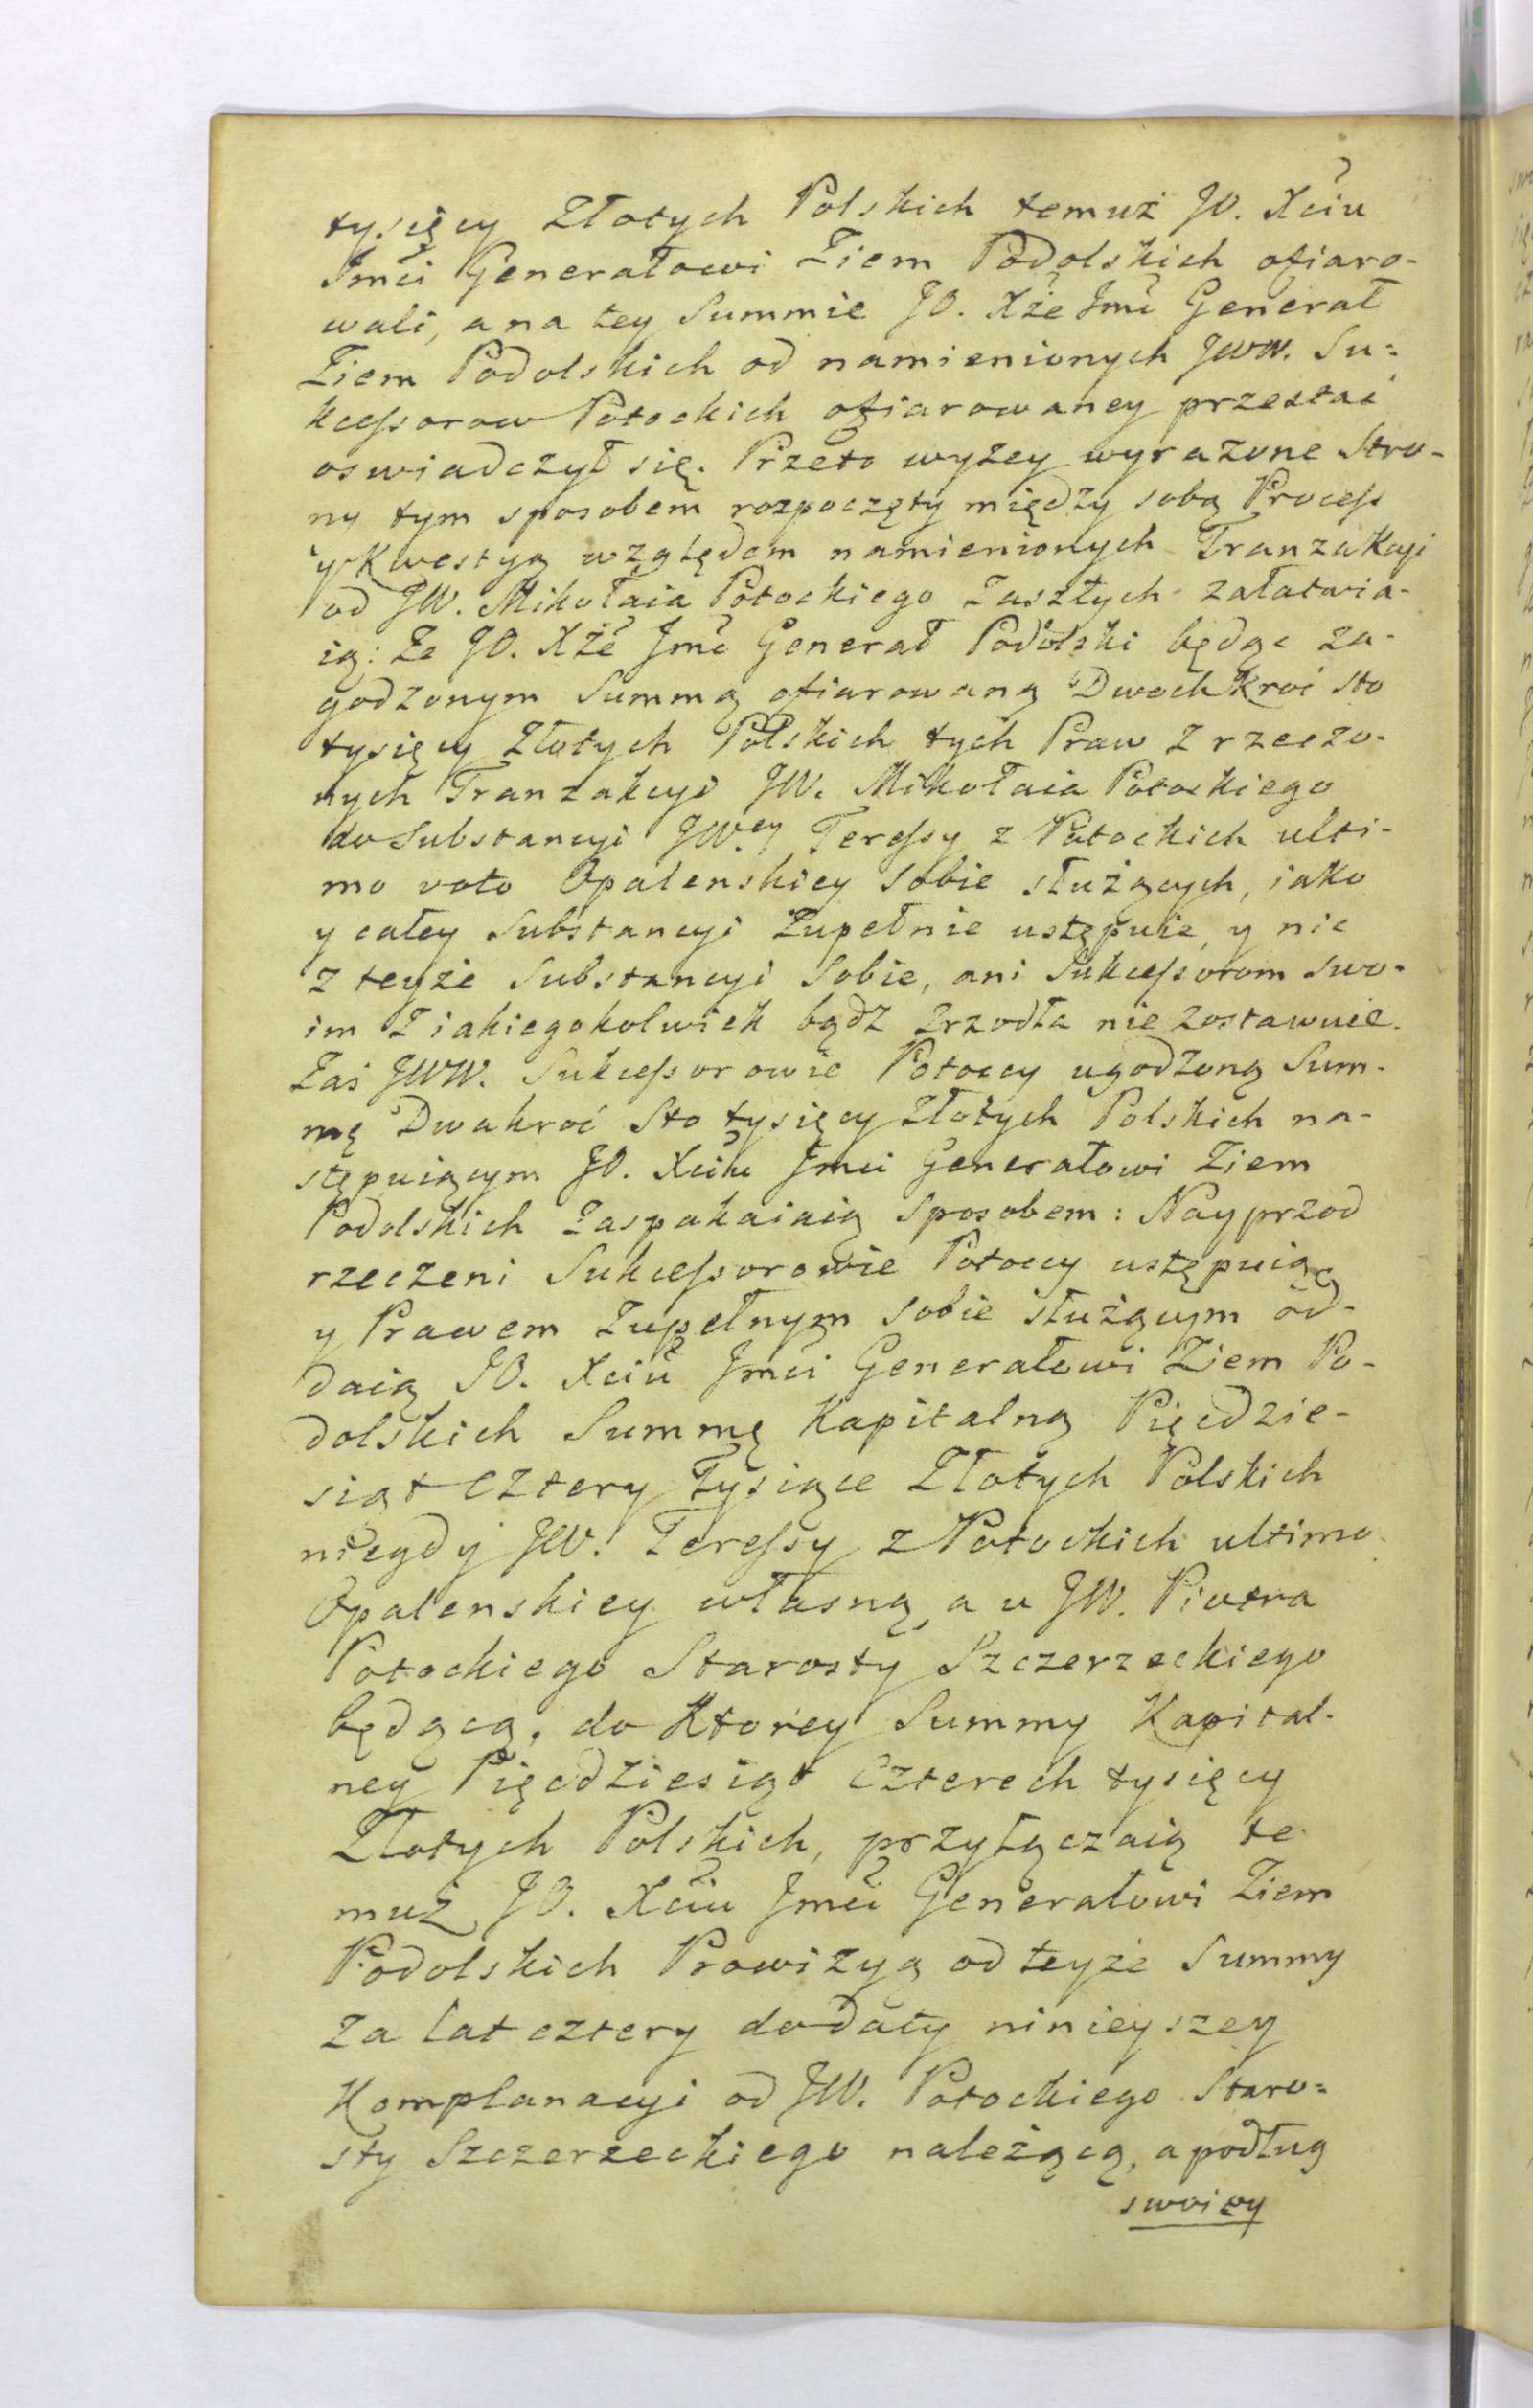 tysięcy Złotych Polskich temuż JO. Xciu
Jmći Generałowi Ziem Podolskich ofiaro-
wali, a na tey Summie JO. Xże Jmć Generał
Ziem Podolskich od namienionych JWW. Su-
kceſsorow Potockich ofiarowaney przestać
oswiadczył się. Przeto wyżey wyrazone Stro-
ny tym sposobem rozpoczęty między sobą Proceſs
y Kwestyą względem namienionych Tranzakcyi
od JW. Mikołaia Potockiego Zaszłych załatwia-
ią: Ze JO. Xże Jmć Generał Podolski będąc za-
godzonym Summą ofiarowaną Dwochkroć sto
tysięcy Złotych Polskich tych Praw z rzeczo-
nych Tranzakcyi JW. Mikołaia Potockiego
do Substancyi JWey Tereſsy z Potockich ulti-
mo voto Opalenskiey sobie służących, iako
y całey Substancyi Zupełnie ustępuie, y nic
z teyże Substancyi Sobie, ani Sukceſsorom swo-
im Z iakiegokolwiek bądz Zrzodła nie zostawuie.
Zaś JWW. Sukceſsorowie Potoccy ugodzoną Sum-
mę Dwakroć Sto tysięcy Złotych Polskich na-
stępuiącym JO. Xciu Jmci Generałowi Ziem
Podolskich Zaspakaiaią Sposobem: Nayprzod
rzeczeni Sukceſsorowie Potoccy ustępuią
y Prawem Zupełnym sobie służącym od-
daią JO. Xciu Jmći Generałowi Ziem Po-
dolskich Summę Kapitalną Pięcdzie-
siąt Cztery Tysiące Złotych Polskich
niegdy JW. Tereſsy z Potockich ultimo
Opalenskiey własną, a u JW. Piotra
Potockiego Starosty Szczerzeckiego
będącą, do Ktorey Summy Kapital-
ney Pięcdziesiąt Czterech tysięcy
Złotych Polskich, przyłączaią te-
muż JO. Xciu Jmći Generałowi Ziem
Podolskich Prowizyą od teyże Summy
za lat cztery do daty ninieyszey
Komplanacyi od JW. Potockiego Staro-
sty Szczerzeckiego należącą, a podług
swoiey